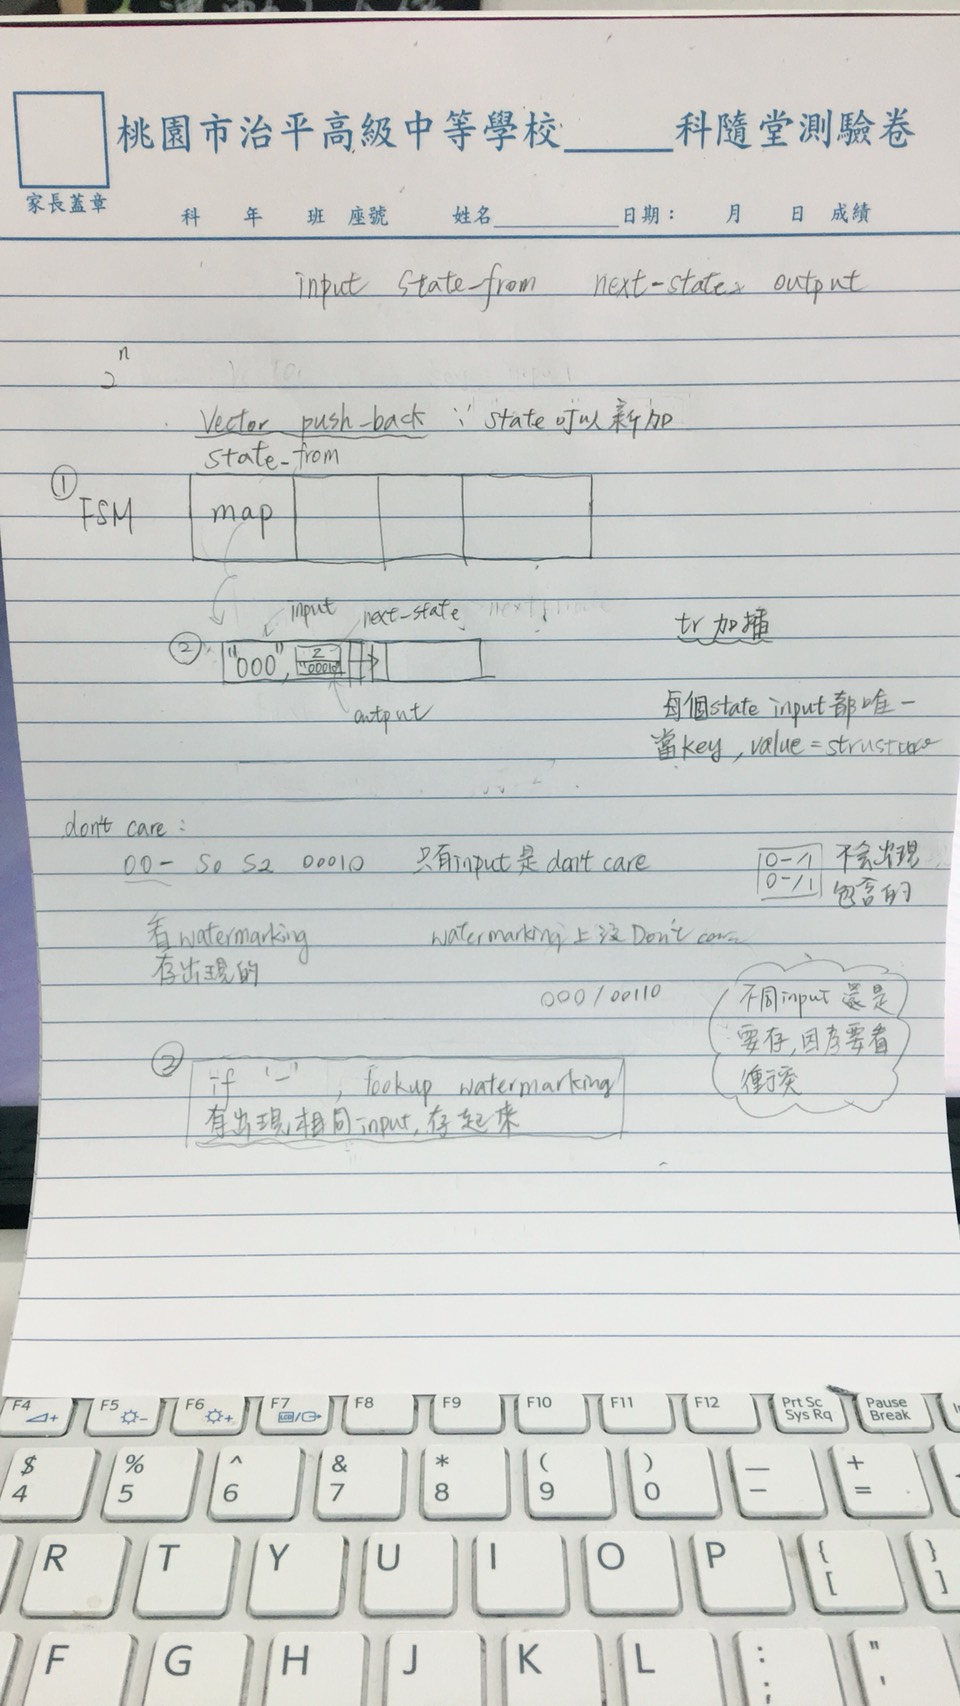 桃園市治平高級中等學校______科隨堂測驗卷
家長蓋章
科 年 班 座號 姓名__________日期： 月 日 成績
input state-from next-state output
2^n
Vector push-back ∵ state可以新加
state-from
① FSM map
input next-state
② "000", 2 "00010"
output
tr 加插
每個state input都唯一
當key, value = structure
don't care :
00- S0 S2 00010 只有input是don't care
0-/1 不會出現
0-/1 包含的
看watermarking watermarking上沒Don't care
存出現的
000/00110
不同input 還是
要存,因為要看
衝突
② if '-' , lookup watermarking
有出現相同input,存起來
F4 F5 F6 F7 F8 F9 F10 F11 F12 Prt Sc Sys Rq Pause Break
$ % ^ & * ( ) — +
4 5 6 7 8 9 0 - =
R T Y U I O P { }
[ ]
F G H J K L : "
; '